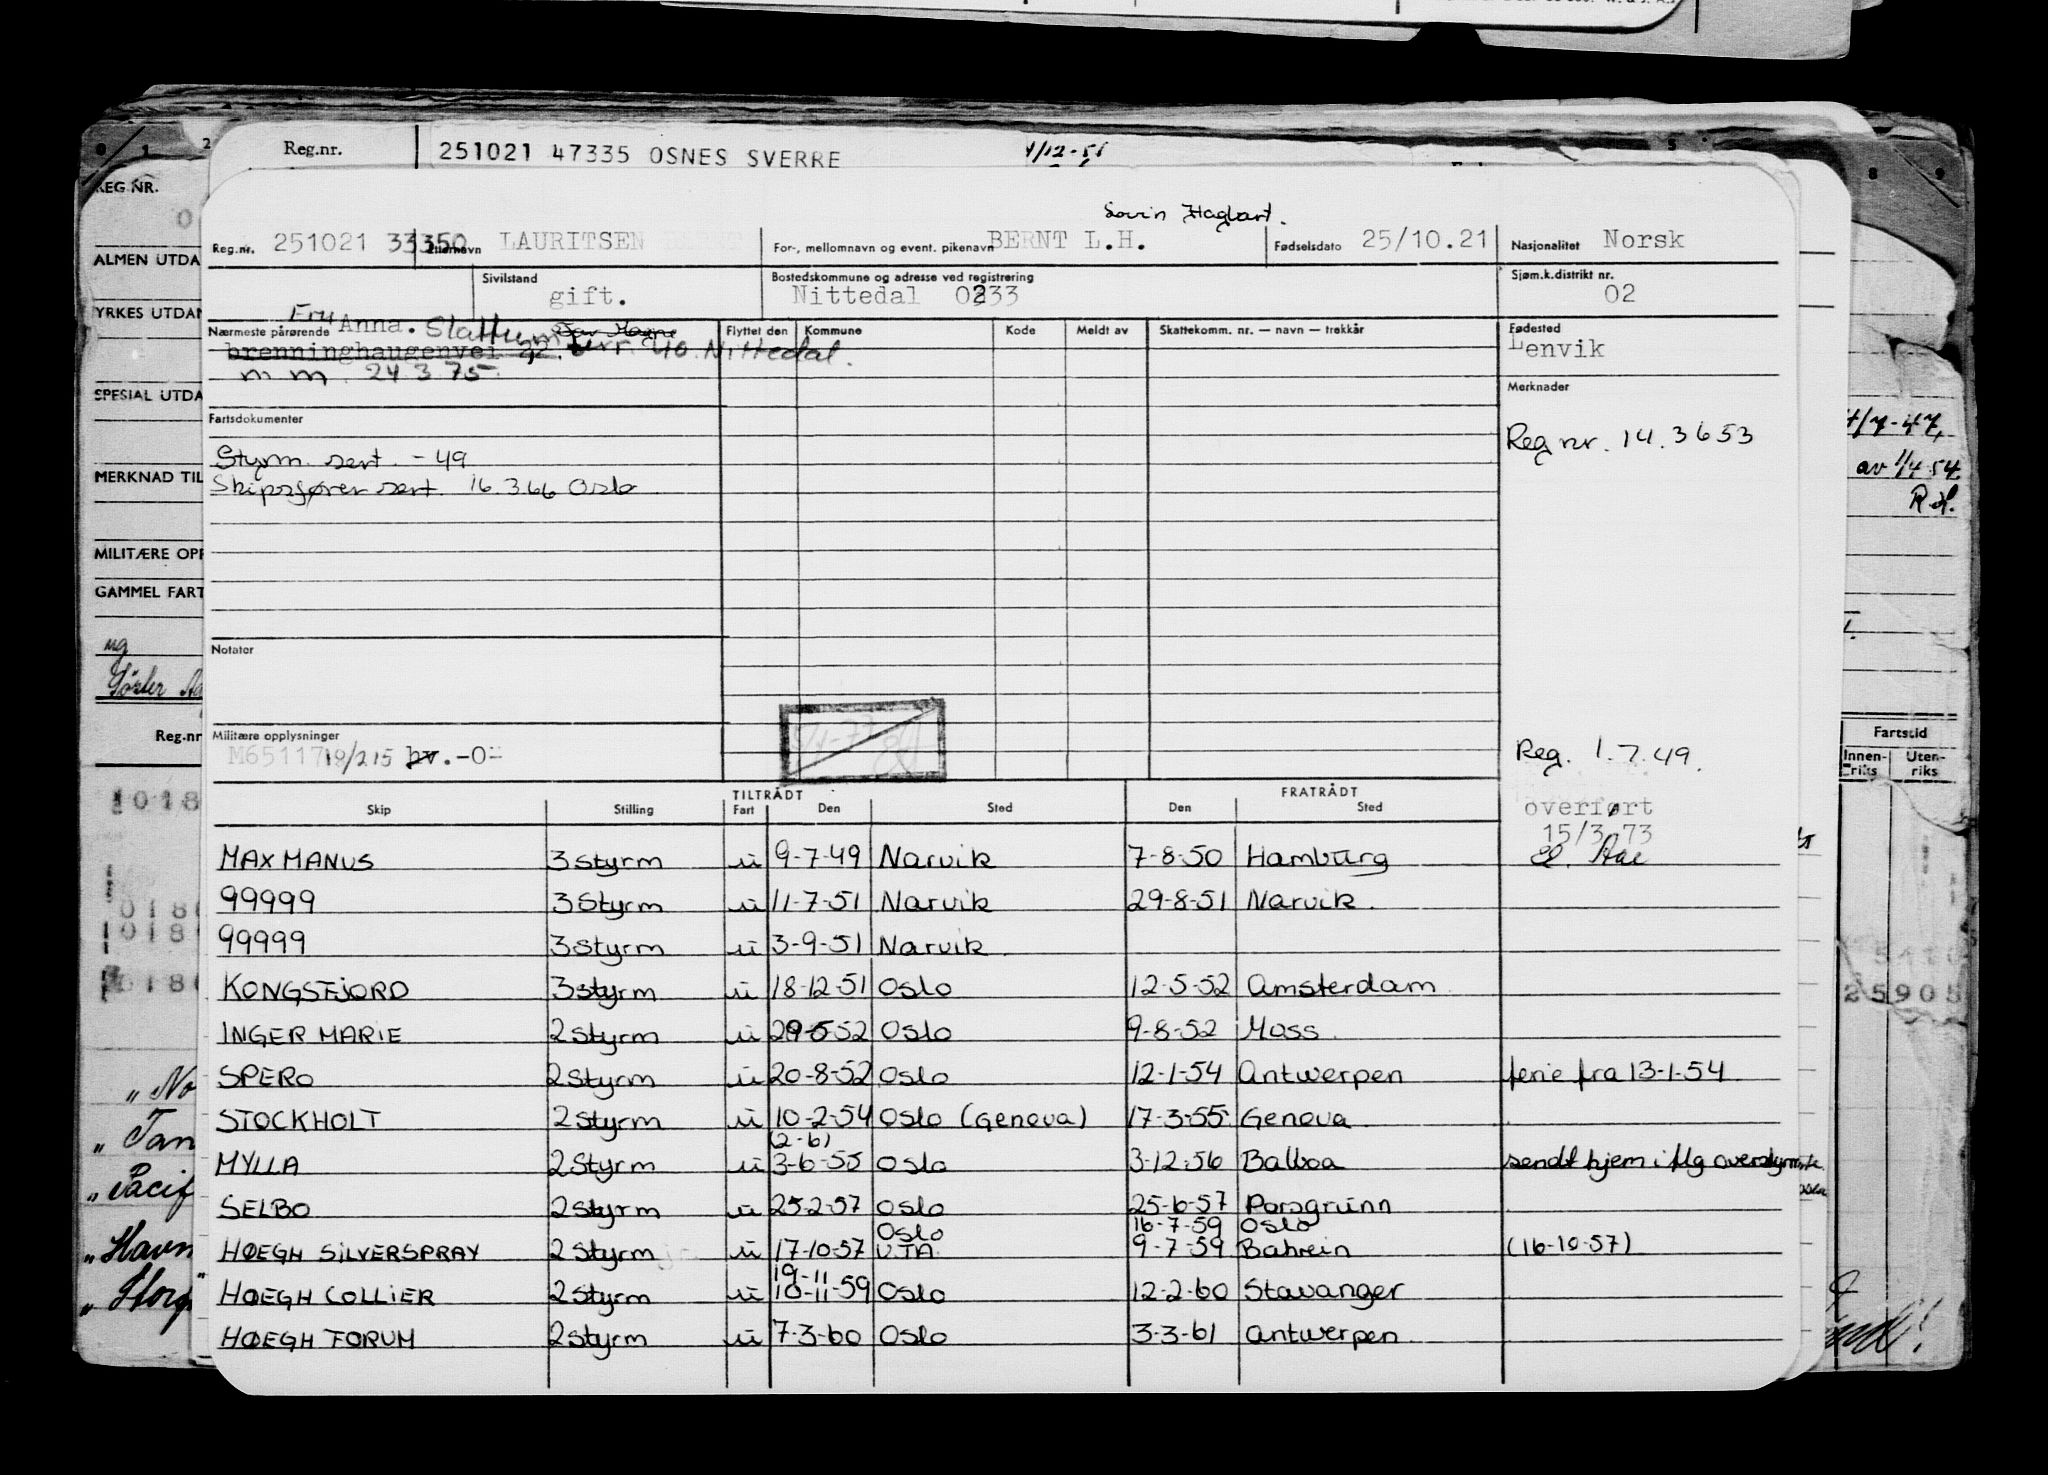 Reg.nr. 251021 47335 OSNES SVERRE
REG NR.
ALMEN UTDA
YRKES UTDAN
SPESIAL UTDA
MERKNAD TIL
MILITÆRE OPP
GAMMEL FART
Reg.nr
Hagbart.
Reg.nr. 251021 33350 Etternavn LAURITSEN For-, mellomnavn og event. pikenavn BERNT L.H. Fødselsdato 25/10.21 Nasjonalitet Norsk
Sivilstand gift. Bostedskommune og adresse ved registrering Nittedal 0233 Sjøm.k.distrikt nr. 02
Nærmeste pårørende Fru Anna. Slattum Flyttet den Kommune Kode Meldt av Skattekomm. nr. — navn — trekkår Fødested Lenvik
brenninghaugenvei 22. terr. 40. Nittedal.
m m. 24.3.75.
Merknader
Reg nr. 14.3653
Fartsdokumenter
Styrm. sert. - 49
Skipsfører sert. 16.3.66 Oslo
Notater
Militære opplysninger
M651171 18/215 hv. -O-
Reg. 1.7.49.
overført
15/3.73
TILTRÅDT FRATRÅDT
Skip Stilling Fart Den Sted Den Sted
MAX MANUS 3 styrm u 9-7-49 Narvik 7-8-50 Hamburg
99999 3 Styrm u 11-7-51 Narvik 29-8-51 Narvik.
99999 3 styrm u 3-9-51 Narvik
KONGSFJORD 3 styrm u 18-12-51 Oslo 12-5-52 Amsterdam
INGER MARIE 2 styrm u 29-5-52 Oslo 9-8-52 Moss
SPERO 2 styrm u 20-8-52 Oslo 12-1-54 Antwerpen ferie fra 13-1-54
STOCKHOLT 2 styrm u 10-2-54 Oslo (Genova) 17-3-55 Genova
(2-6)
MYLLA 2 Styrm u 3-6-55 Oslo 3-12-56 Balboa sendt hjem i flg overstyrmste.
SELBO 2 styrm u 25-2-57 Oslo 25-6-57 Porsgrunn
Oslo 16-7-59 Oslo
HØEGH SILVERSPRAY 2 styrm u 17-10-57 UTA 9-7-59 Bahrein (16-10-57)
19-11
HØEGH COLLIER 2 styrm u 10-11-59 Oslo 12-2-60 Stavanger
HØEGH FORUM 2 styrm u 7-3-60 Oslo 3-3-61 Antwerpen
4/7-47,
av 1/4 54
Fartstid
Innen-riks Uten-riks
25905